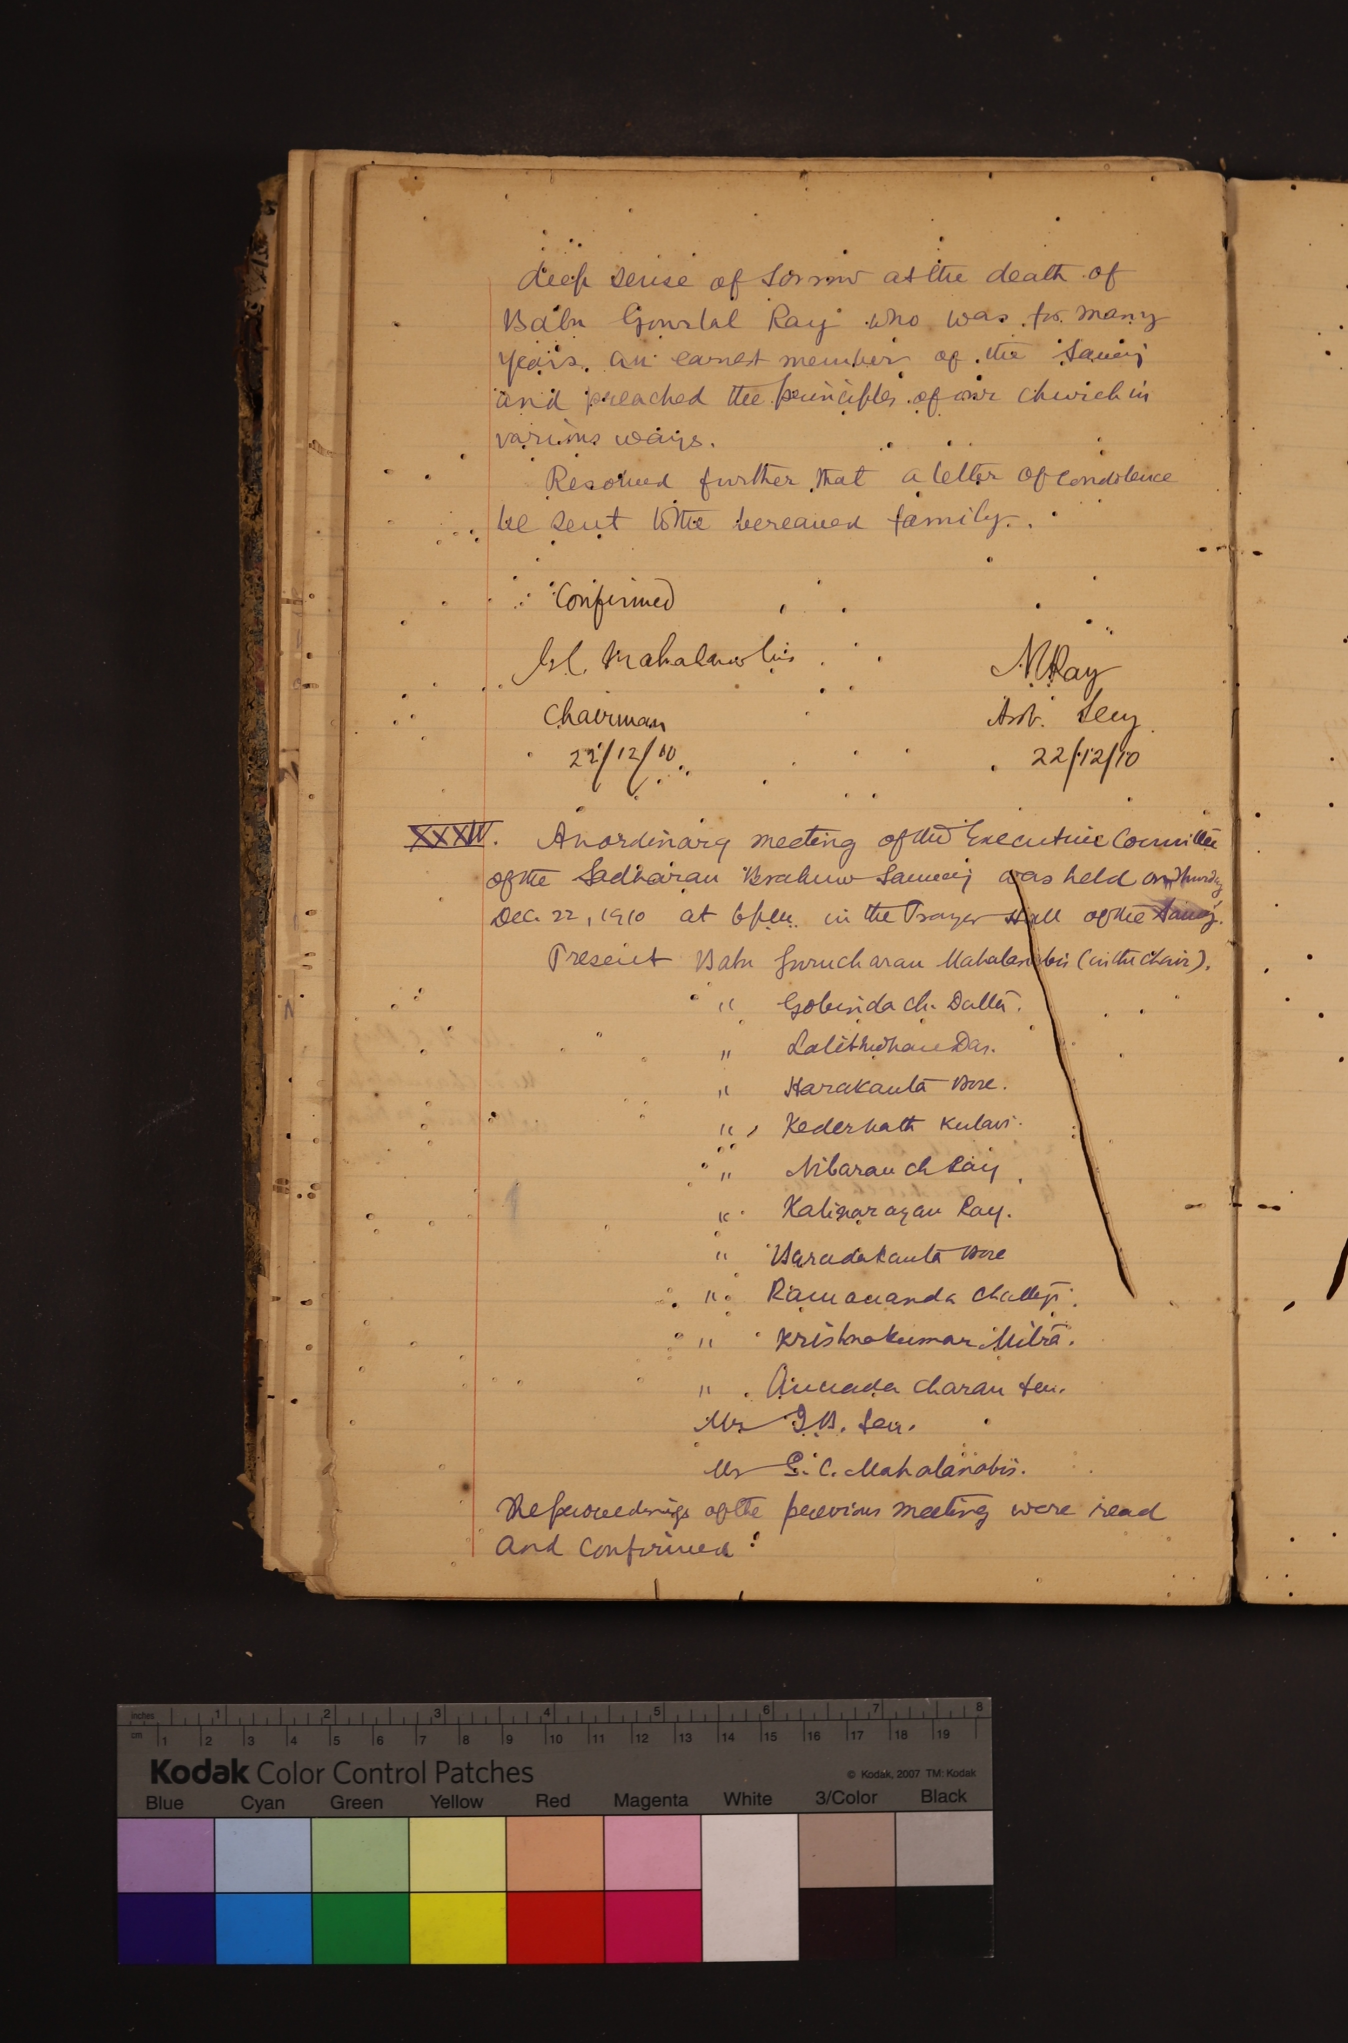 deep sense of sorrow at the death of
Babu Gourlal Ray who was for many
years an earnest member of the Samaj
and preached the principles of our church in
various ways.
Resolved further that a letter of condolence
be sent to the bereaved family.
Confirmed
G.C. Mahalanobis
N Ray
Chairman
Asst. Secy
22/12/10
22/12/10
XXXIV. An ordinary meeting of the Executive Committee
of the Sadharan Brahmo Samaj was held on Thursday
Dec. 22, 1910 at 6 p.m. in the Prayer Hall of the Samaj.
Present Babu Gurucharan Mahalanobis (in the chair).
" Gobinda Ch. Datta.
" Lalitmohan Das.
" Harakanta Bose.
" Kedernath Kulavi.
" Nibaran Ch Ray
" Kalinarayan Ray.
" Baradakanta Bose
" Ramananda Chatterji.
" Krishnakumar Mitra.
" Annada Charan Sen.
Mr. Sen.
Mr S. C. Mahalanobis.
The proceedings of the previous meeting were read
and confirmed.
inches 1 2 3 4 5 6 7 8
cm 1 2 3 4 5 6 7 8 9 10 11 12 13 14 15 16 17 18 19
Kodak Color Control Patches
© Kodak, 2007 TM: Kodak
Blue Cyan Green Yellow Red Magenta White 3/Color Black